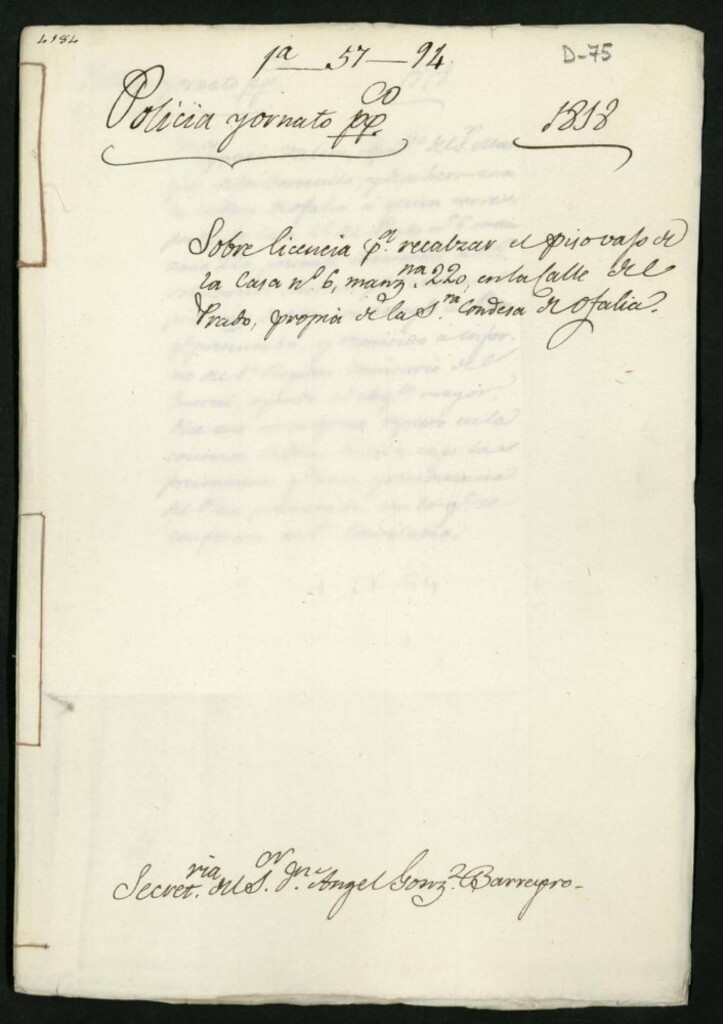 1ª 57-94
D-75
Policia y ornato pp.co 1818
Sobre licencia p.a recalzar el piso vajo de
la Casa n.º 6, manz.na 220, en la Calle del
Prado, propia de la S.ra Condesa de Ofalia.
Secret.ria del S.or D.n Angel Gonz.z Barreyro-